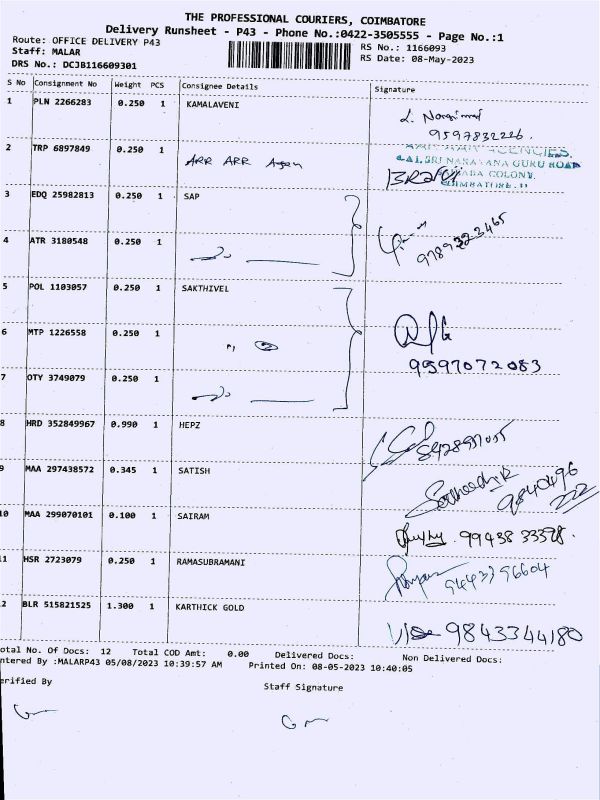 THE PROFESSIONAL COURIERS, COIMBATORE
Delivery Runsheet - P43 - Phone No.:0422-3505555 - Page No.:1
Route: OFFICE DELIVERY P43
RS No.: 1166093
Staff: MALAR
RS Date: 08-May-2023
DRS No.: DCJB116609301
S No Consignment No Weight PCS Consignee Details Signature
1 PLN 2266283 0.250 1 KAMALAVENI
9597832226
2 TRP 6897849 0.250 1 ARR ARR Agen
AGENCIES.
SRI NARAYANA GURU ROAD
COLONY.
COIMBATORE. 11
3 EDQ 25982813 0.250 1 SAP
4 ATR 3180548 0.250 1
9789323465
5 POL 1103057 0.250 1 SAKTHIVEL
6 MTP 1226558 0.250 1
9597072083
7 OTY 3749079 0.250 1
8 HRD 352849967 0.990 1 HEPZ
9 MAA 297438572 0.345 1 SATISH
9840496
222
10 MAA 299070101 0.100 1 SAIRAM
99438 33398.
11 HSR 2723079 0.250 1 RAMASUBRAMANI
9443396604
2 BLR 515821525 1.300 1 KARTHICK GOLD
9843344180
otal No. Of Docs: 12 Total COD Amt: 0.00 Delivered Docs: Non Delivered Docs:
ntered By :MALARP43 05/08/2023 10:39:57 AM Printed On: 08-05-2023 10:40:05
erified By
Staff Signature